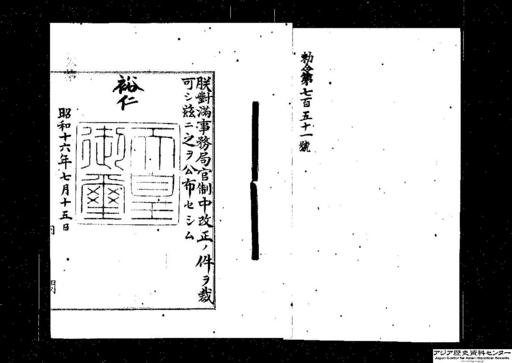 勅令第七百五十一號
朕對滿事務局官制中改正ノ件ヲ裁
可シ玆ニ之ヲ公布セシム
裕仁
天皇
御璽
昭和十六年七月十五日
アジア歴史資料センター
Japan Center for Asian Historical Records